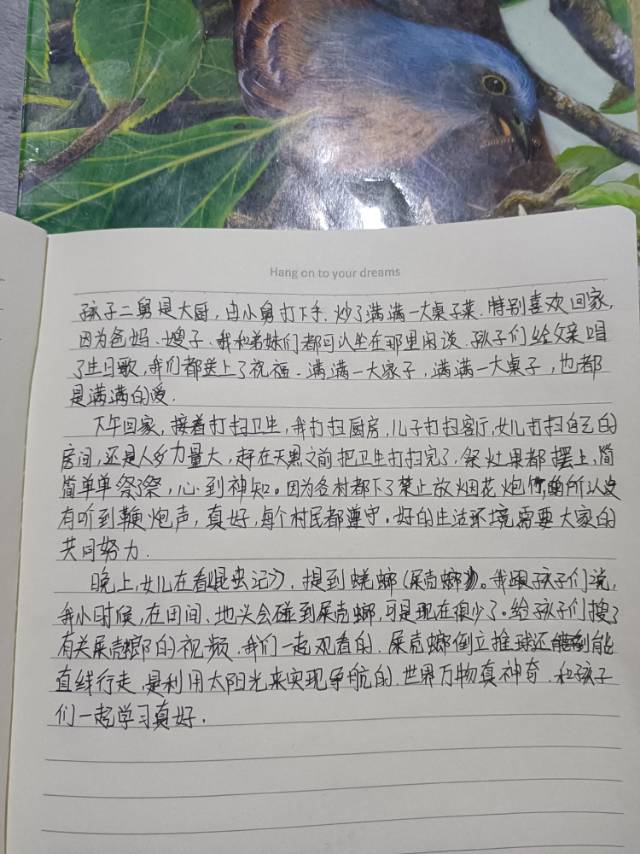 Hang on to your dreams
孩子二舅是大厨，由小舅打下手，炒了满满一大桌子菜。特别喜欢回家，
因为爸妈、嫂子、我和弟妹们都可以坐在那里闲谈。孩子们给父亲唱
了生日歌，我们都送上了祝福。满满一大家子，满满一大桌子，也都
是满满的爱。
下午回家，接着打扫卫生，我打扫厨房，儿子打扫客厅，女儿打扫自己的
房间，还是人多力量大，赶在天黑之前把卫生打扫完了，祭灶果都摆上，简
简单单祭了祭，心到神知。因为各村都下了禁止放烟花炮竹的所以没
有听到鞭炮声，真好，每个村民都遵守。好的生活环境需要大家的
共同努力.
晚上，女儿在看《昆虫记》，提到蜣螂（屎壳螂）。我跟孩子们说，
我小时候，在田间、地头会碰到屎壳螂，可是现在很少了。给孩子们搜了
有关屎壳螂的视频，我们一起观看的，屎壳螂倒立推球还能
直线行走，是利用太阳光来实现导航的，世界万物真神奇，和孩子
们一起学习真好.